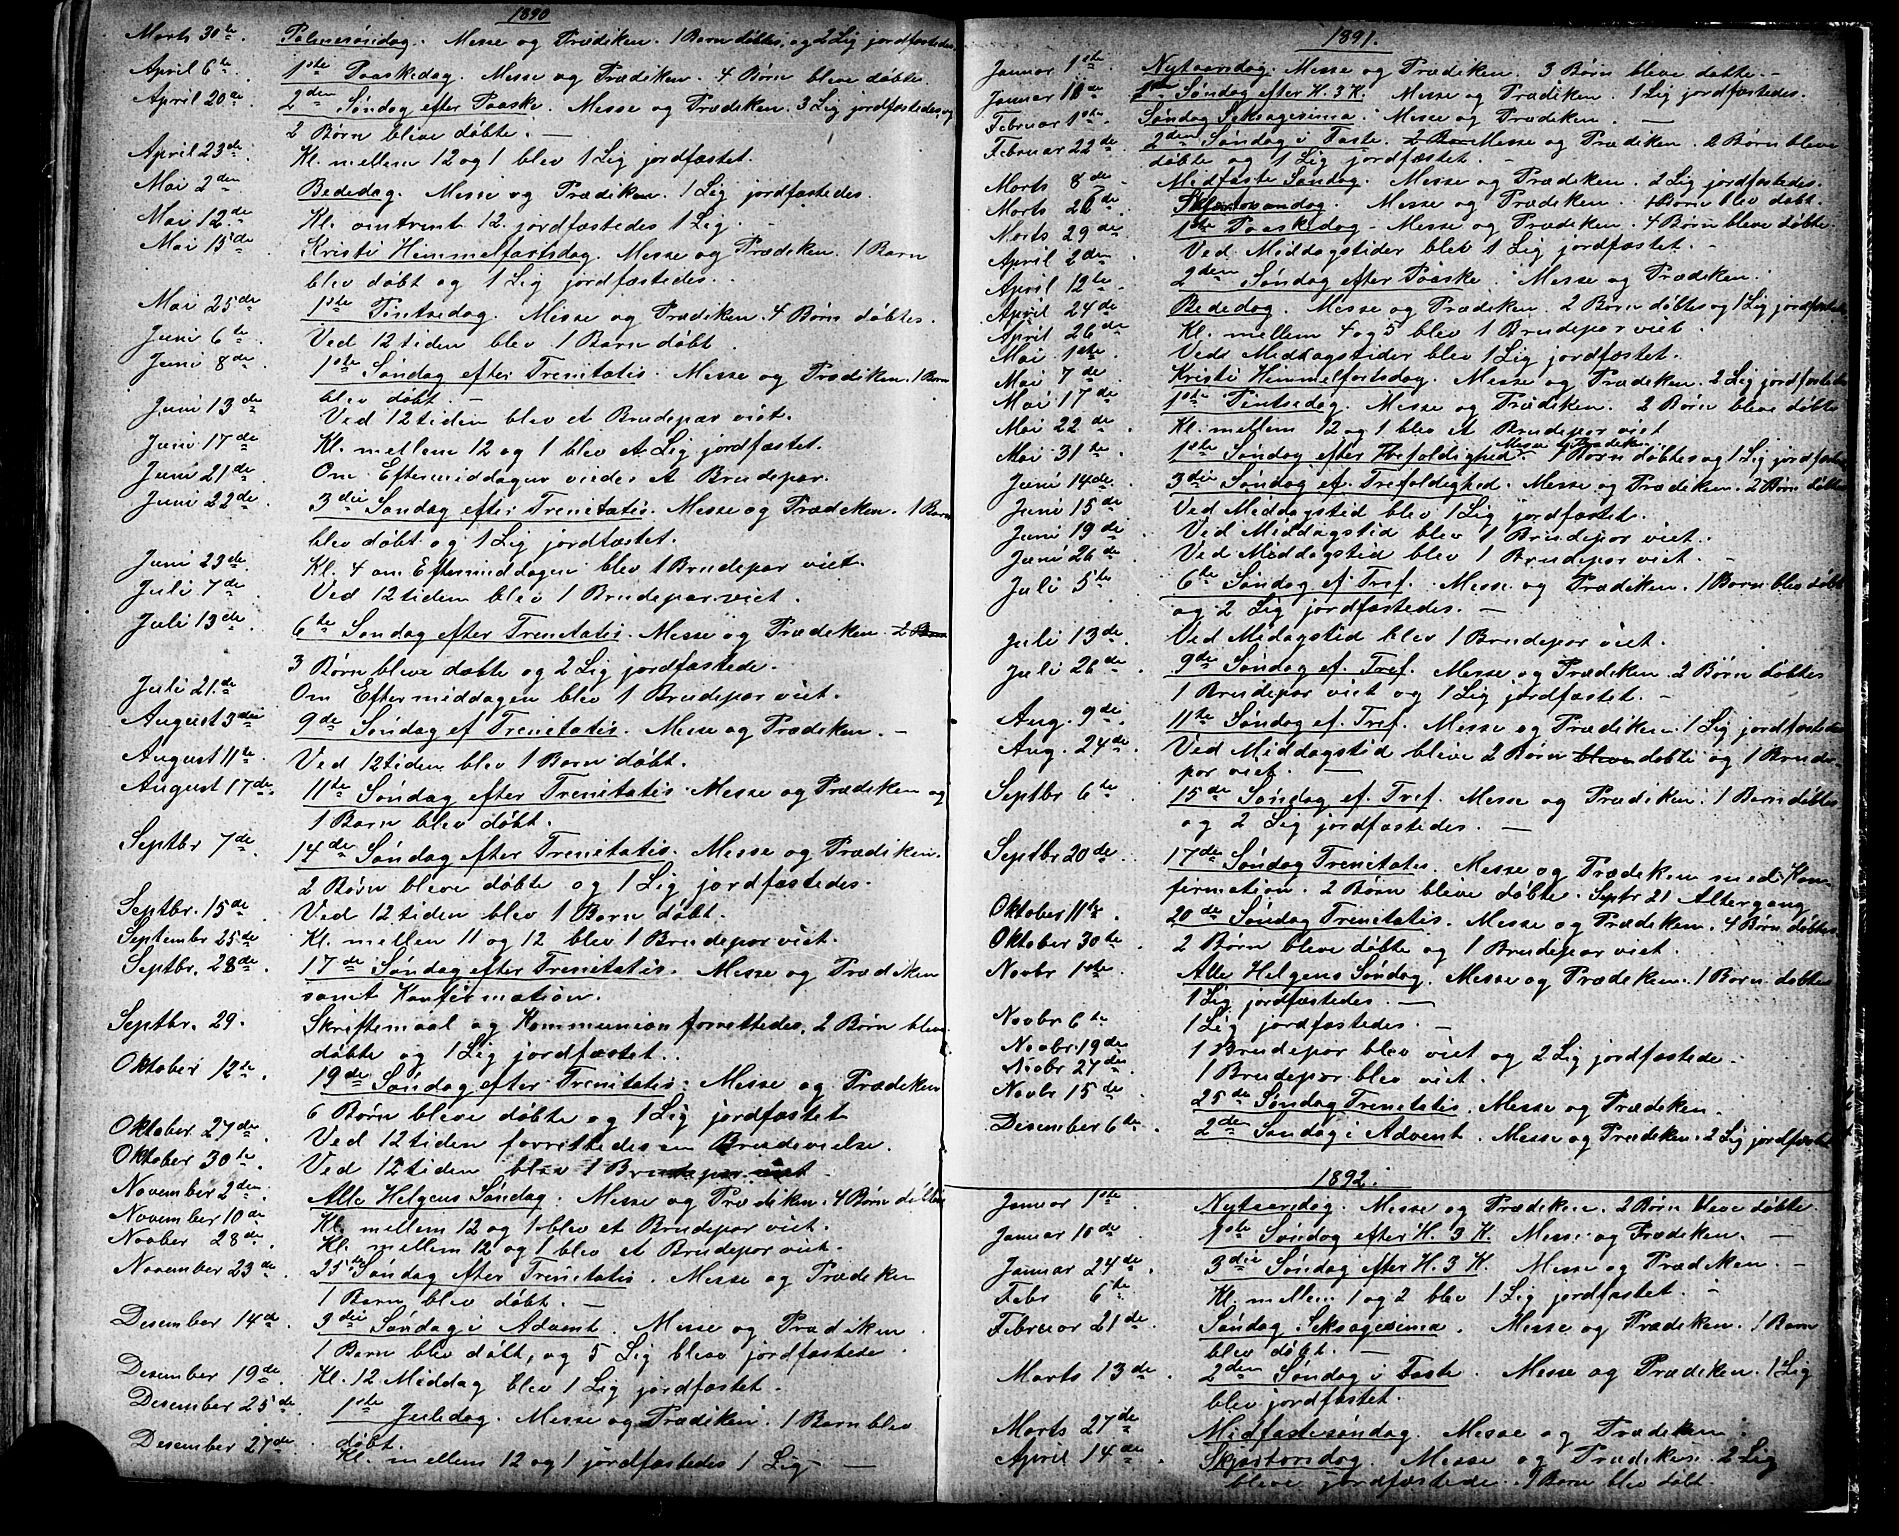 1890
Marts 30te. Palmesøndag. Messe og Prædiken. 1 Barn døbtes, og 2 Lig jordfæstedes.
April 6te. 1ste Paaskedag. Messe og Prædiken. 4 Børn bleve døbte.
April 20de. 2den Søndag efter Paaske. Messe og Prædiken. 3 Lig jordfæstedes, og
2 Børn bleve døbte. —
April 23de. Kl. mellem 12 og 1 blev 1 Lig jordfæstet.
Mai 2den. Bededag. Messe og Prædiken. 1 Lig jordfæstedes.
Mai 12te. Kl. omtrent 12 jordfæstedes 1 Lig. —
Mai 15de. Kristi Himmelfartsdag. Messe og Prædiken. 1 Barn
blev døbt og 1 Lig jordfæstedes.
Mai 25de. 1ste Pintsedag. Messe og Prædiken. 4 Børn døbtes.
Juni 6te. Ved 12 tiden blev 1 Barn døbt.
Juni 8de. 1ste Søndag efter Trenitatis. Messe og Prædiken. 1 Barn
blev døbt. —
Juni 13de. Ved 12 tiden blev et Brudepar viet.
Juni 17de. Kl. mellem 12 og 1 blev et Lig jordfæstet.
Juni 21de. Om Eftermiddagen viedes et Brudepar.
Juni 22de. 3die Søndag efter Trenitatis. Messe og Prædiken. 1 Barn
blev døbt og 1 Lig jordfæstet.
Juni 23de. Kl. 4 om Eftermiddagen blev 1 Brudepar viet.
Juli 7de. Ved 12 tiden blev 1 Brudepar viet.
Juli 13de. 6te Søndag efter Trenitatis. Messe og Prædiken. 2 Børn
3 Børn bleve døbte og 2 Lig jordfæstede.
Juli 21de. Om Eftermiddagen blev 1 Brudepar viet.
August 3die. 9de Søndag ef Trenitatis. Messe og Prædiken. —
August 11te. Ved 12 tiden blev 1 Barn døbt.
August 17de. 11te Søndag efter Trenitatis. Messe og Prædiken og
1 Barn blev døbt.
Septbr 7de. 14de Søndag efter Trenitatis. Messe og Prædiken.
2 Børn bleve døbte og 1 Lig jordfæstedes.
Septbr. 15de. Ved 12 tiden blev 1 Barn døbt.
September 25de. Kl. mellem 11 og 12 blev 1 Brudepar viet.
Septbr. 28de. 17de Søndag efter Trenitatis. Messe og Prædiken
samt Konfirmation.
Septbr. 29. Skriftemaal og Kommunion forrettedes. 2 Børn bleve
døbte og 1 Lig jordfæstet.
Oktober 12te. 19de Søndag efter Trenitatis. Messe og Prædiken
6 Børn bleve døbte og 1 Lig jordfæstet
Oktober 27de. Ved 12 tiden forrettedes en Brudevielse.
Oktober 30te. Ved 12 tiden blev 1 Brudepar viet
November 2den. Alle Helgens Søndag. Messe og Prædiken. 4 Børn døbtes
November 10de. Kl. mellem 12 og 1 blev et Brudepar viet.
Novber 28de. Kl. mellem 12 og 1 blev et Brudepar viet.
November 23de. 25de Søndag efter Trenitatis. Messe og Prædiken
1 Barn blev døbt. —
Desember 14de. 3die Søndag i Advent. Messe og Prædiken.
1 Barn blev døbt, og 5 Lig bleve jordfæstede.
Desember 19de. Kl. 12 Middag blev 1 Lig jordfæstet.
Desember 25de. 1ste Juledag. Messe og Prædiken. 1 Barn blev
døbt.
Desember 27de. Kl. mellem 12 og 1 jordfæstedes 1 Lig. —
1891.
Januar 1ste. Nytaarsdag. Messe og Prædiken. 3 Børn bleve døbte. —
Januar 11te. 1ste Søndag efter H. 3 K. Messe og Prædiken. 1 Lig jordfæstedes.
Februar 1ste. Søndag Seksagesima. Messe og Prædiken. —
Februar 22de. 2den Søndag i Faste. 2 Bør Messe og Prædiken. 2 Børn bleve
døbte og 1 Lig jordfæstet. —
Marts 8de. Midfaste Søndag. Messe og Prædiken. 2 Lig jordfæstedes.
Marts 26de. Skjærtorsdag. Messe og Prædiken. 1 Børn blev døbt.
Marts 29de. 1ste Paaskedag. Messe og Prædiken. 4 Børn bleve døbte.
April 2den. Ved Middagstider blev 1 Lig jordfæstet. —
April 12te. 2den Søndag efter Paaske. Messe og Prædiken.
April 24de. Bededag. Messe og Prædiken. 2 Børn døbtes og 1 Lig jordfæstedes
April 26de. Kl. mellem 4 og 5 blev 1 Brudepar viet.
Mai 1ste. Veds Middagstider blev 1 Lig jordfæstet.
Mai 7de. Kristi Himmelfartsdag. Messe og Prædiken. 2 Lig jordfæstedes
Mai 17de. 1ste Pintsedag. Messe og Prædiken. 2 Børn bleve døbtes
Mai 22de. Kl. mellem 12 og 1 blev et Brudepar viet
Messe og Prædiken.
Mai 31te. 1ste Søndag efter Trefoldighed. 1 Børn døbtes og 1 Lig jordfæstedes
Juni 14de. 3die Søndag ef. Trefoldighed. Messe og Prædiken. 2 Børn døbtes
Juni 15de. Ved Middagstid blev 1 Lig jordfæstet.
Juni 19de. Ved Middagstid blev 1 Brudepar viet.
Juni 26de. Ved Middagstid blev 1 Brudepar viet. —
Juli 5te. 6te Søndag ef. Tref. Messe og Prædiken. 1 Barn blev døbt
og 2 Lig jordfæstedes. —
Juli 13de. Ved Midagstid blev 1 Brudepar viet.
Juli 26de. 9de Søndag ef. Tref. Messe og Prædiken. 2 Børn døbtes
1 Brudepar viet og 1 Lig jordfæstet. —
Aug. 9de. 11te Søndag ef. Tref. Messe og Prædiken. 1 Lig jordfæstedes
Aug. 24de. Ved Middagstid bleve 2 Børn bleve døbte og 1 Brude-
par viet. —
Septbr 6te. 15de Søndag ef. Tref. Messe og Prædiken. 1 Barn døbtes
og 2 Lig jordfæstedes. —
Septbr 20de. 17de Søndag Trenitatis. Messe og Prædiken med Kon-
firmation. 2 Børn bleve døbte. Septr 21 Altergang
Oktober 11te. 20de Søndag Trenitatis. Messe og Prædiken. 4 Børn døbtes.
Oktober 30te. 2 Børn bleve døbte og 1 Brudepar viet.
Novbr 1ste. Alle Helgens Søndag. Messe og Prædiken. 1 Børn døbtes
1 Lig jordfæstedes. —
Novbr 6te. 1 Lig jordfæstedes. —
Novbr. 19de. 1 Brudepar blev viet og 2 Lig jordfæstede. —
Novbr 27de. 1 Brudepar blev viet.
Novbr 15de. 25de Søndag Trenitatis. Messe og Prædiken.
Desember 6te. 2den Søndag i Advent. Messe og Prædiken. 2 Lig jordfæstet
1892.
Januar 1ste. Nytaarsdag. Messe og Prædiken. 2 Børn bleve døbte
Januar 10de. 1ste Søndag efter H. 3 K. Messe og Prædiken. —
Januar 24de. 3die Søndag efter H. 3 K. Messe og Prædiken. —
Febr 6te. Kl. mellem 1 og 2 blev 1 Lig jordfæstet. —
Februar 21de. Søndag Seksagesima. Messe og Prædiken. 1 Barn
blev døbt. —
Marts 13de. 2den Søndag i Faste. Messe og Prædiken. 1 Lig
blev jordfæstet.
Marts 27de. Midfastesøndag. Messe og Prædiken.
April 14de. Skjærtorsdag. Messe og Prædiken. 2 Lig
bleve jordfæstede. 1 Barn blev døbt.